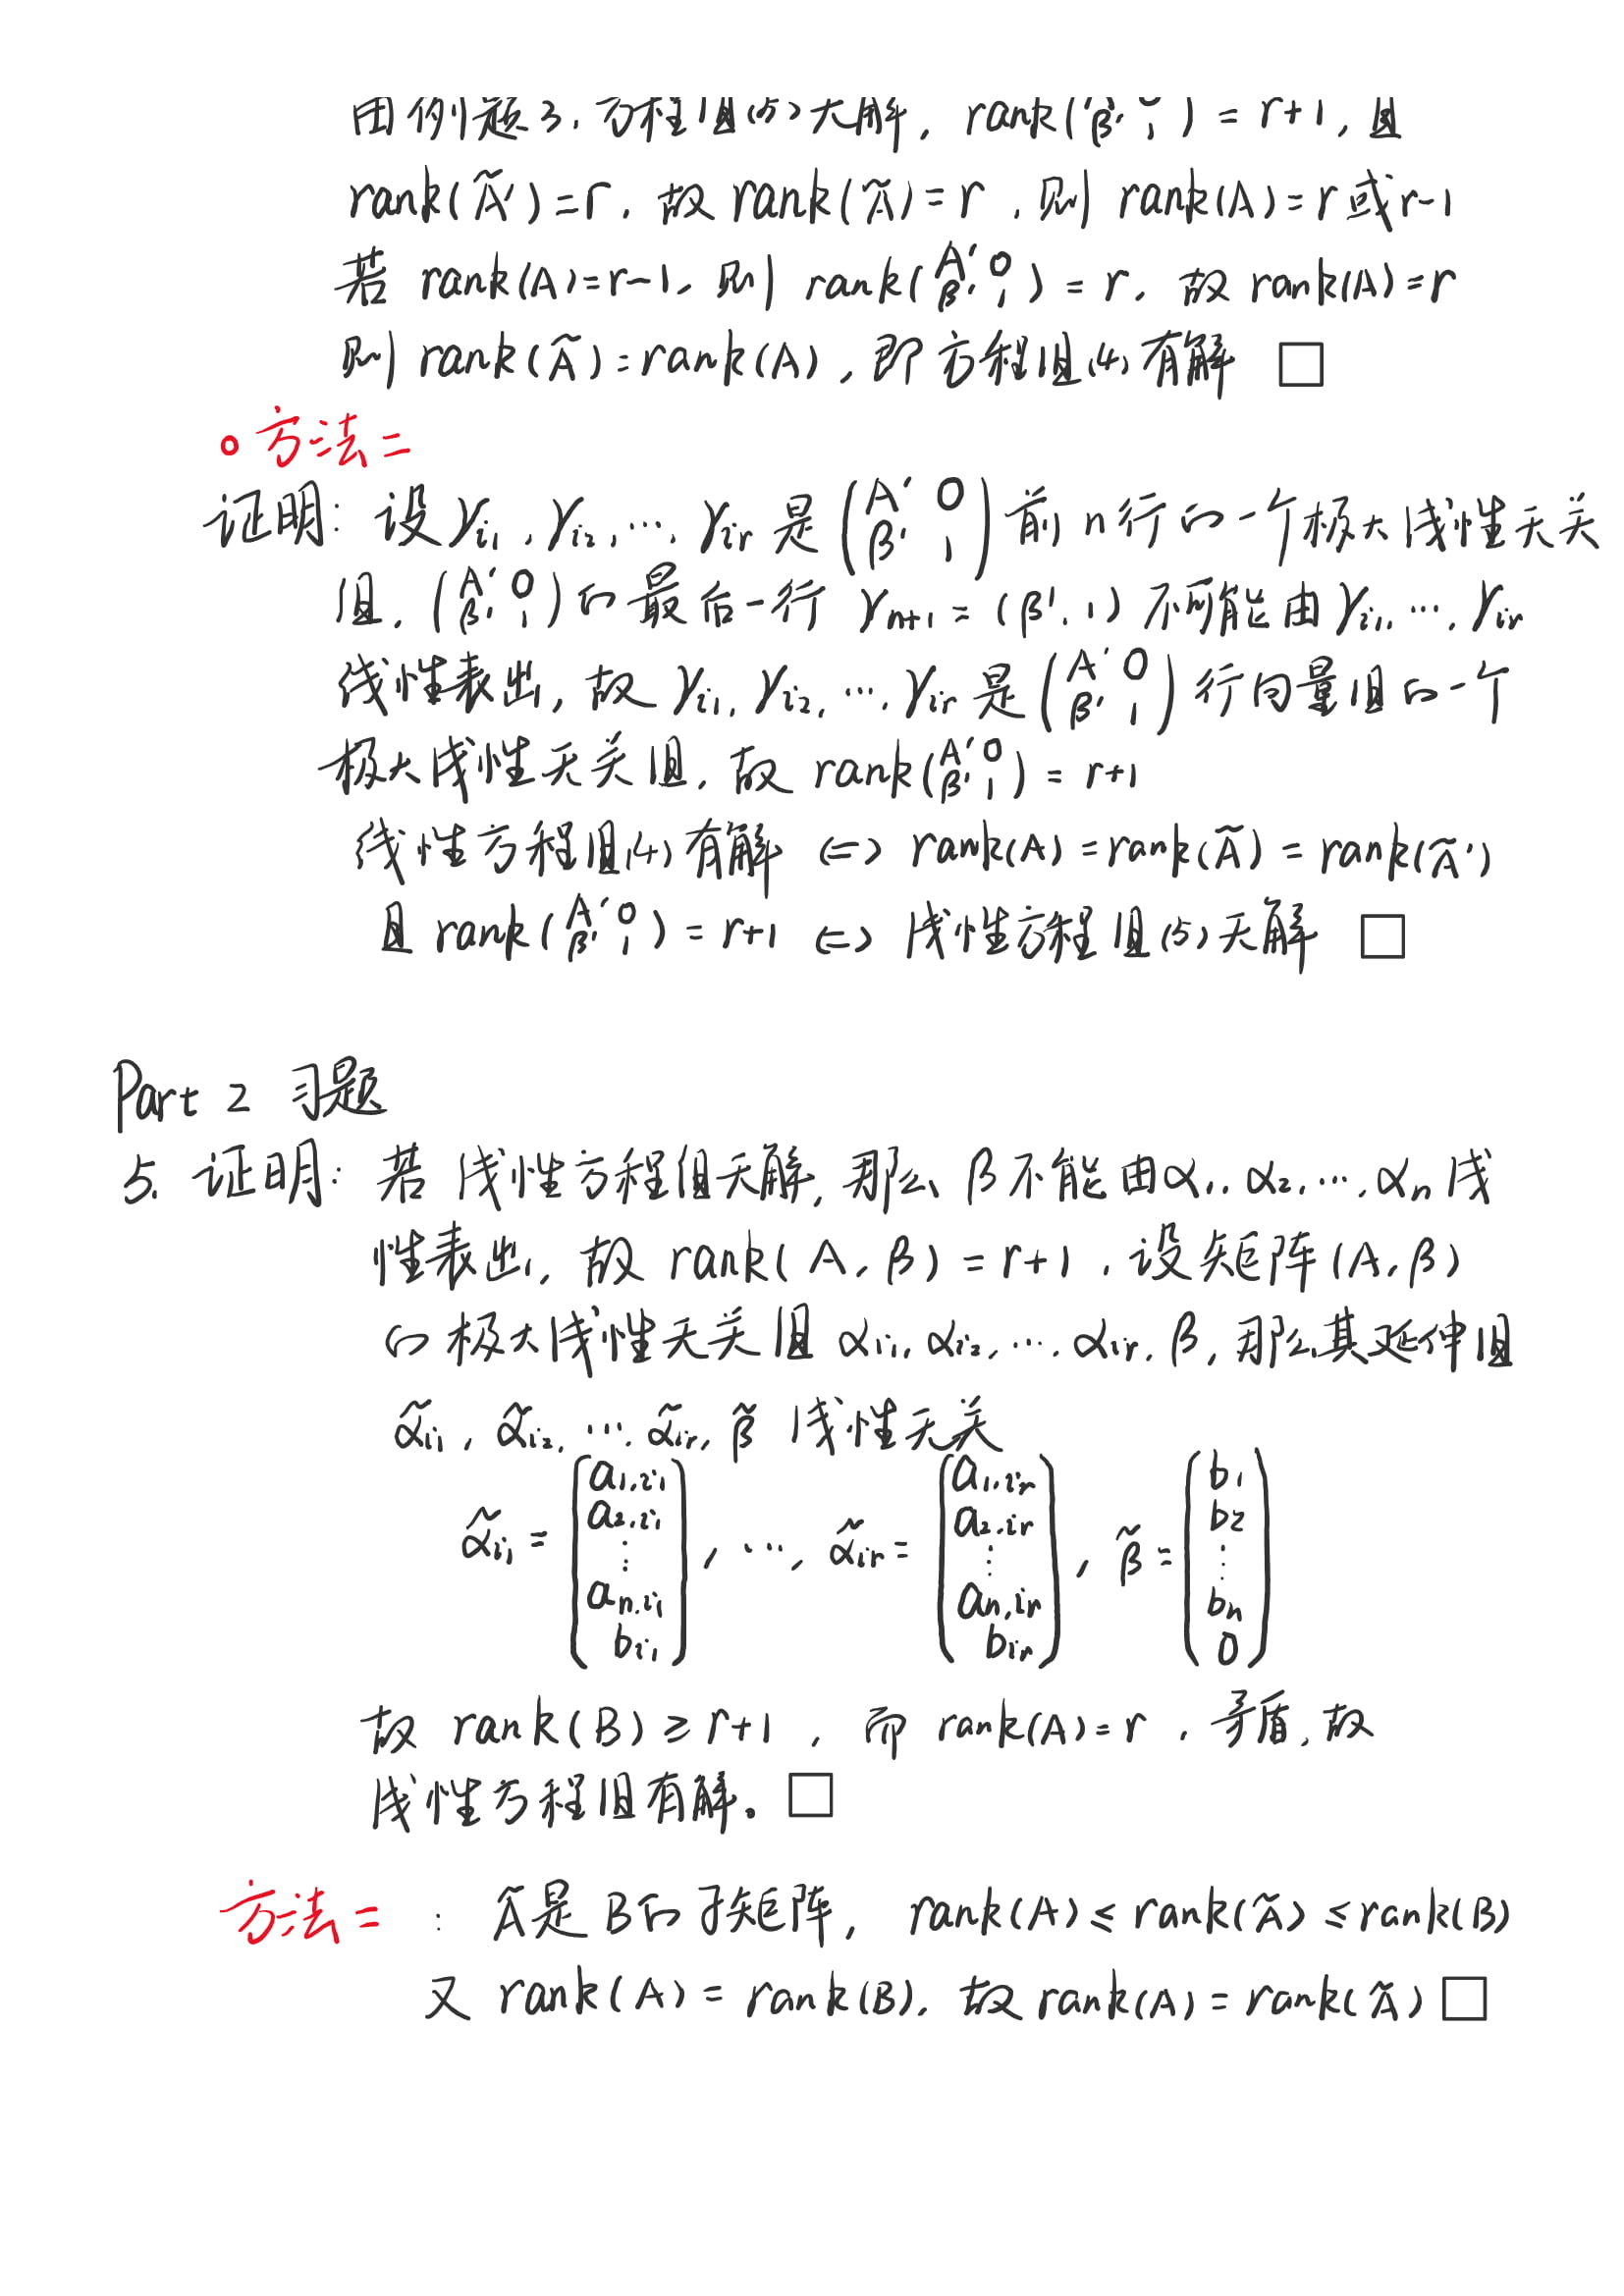 由例题3,方程组(5)无解, rank(A' 0 β' 1) = r+1, 且
rank(Ã')=r, 故 rank(Ã)=r, 则 rank(A)=r或r-1
若 rank(A)=r-1, 则 rank(A' 0 β' 1) = r, 故 rank(A)=r
则 rank(Ã)=rank(A), 即方程组(4)有解 □
。方法二
证明: 设 γi₁, γi₂, …, γir 是 (A' 0 β' 1) 前n行的一个极大线性无关
组, (A' 0 β' 1) 的最后一行 γn+1 = (β', 1) 不可能由 γi₁, …, γir
线性表出, 故 γi₁, γi₂, …, γir 是 (A' 0 β' 1) 行向量组的一个
极大线性无关组, 故 rank(A' 0 β' 1) = r+1
线性方程组(4)有解 <=> rank(A) = rank(Ã) = rank(Ã')
且 rank(A' 0 β' 1) = r+1 <=> 线性方程组(5)无解 □
Part 2 习题
5. 证明: 若线性方程组无解, 那么 β不能由α₁, α₂, …, αn 线
性表出, 故 rank(A, β) = r+1, 设矩阵(A, β)
的极大线性无关组 αi₁, αi₂, …, αir, β, 那么其延伸组
α̃i₁, α̃i₂, …, α̃ir, β̃ 线性无关
α̃i₁ = (a₁,i₁ a₂,i₁ ⋮ an,i₁ bi₁), …, α̃ir = (a₁,ir a₂,ir ⋮ an,ir bir), β̃ = (b₁ b₂ ⋮ bn 0)
故 rank(B) ≥ r+1, 而 rank(A)=r, 矛盾, 故
线性方程组有解。 □
方法二 : Ã是B的子矩阵, rank(A) ≤ rank(Ã) ≤ rank(B)
又 rank(A) = rank(B), 故 rank(A) = rank(Ã) □